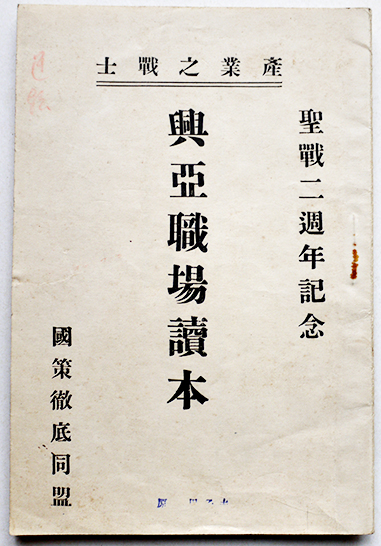 産業之戰士
聖戰二週年記念
興亞職場讀本
國策徹底同盟